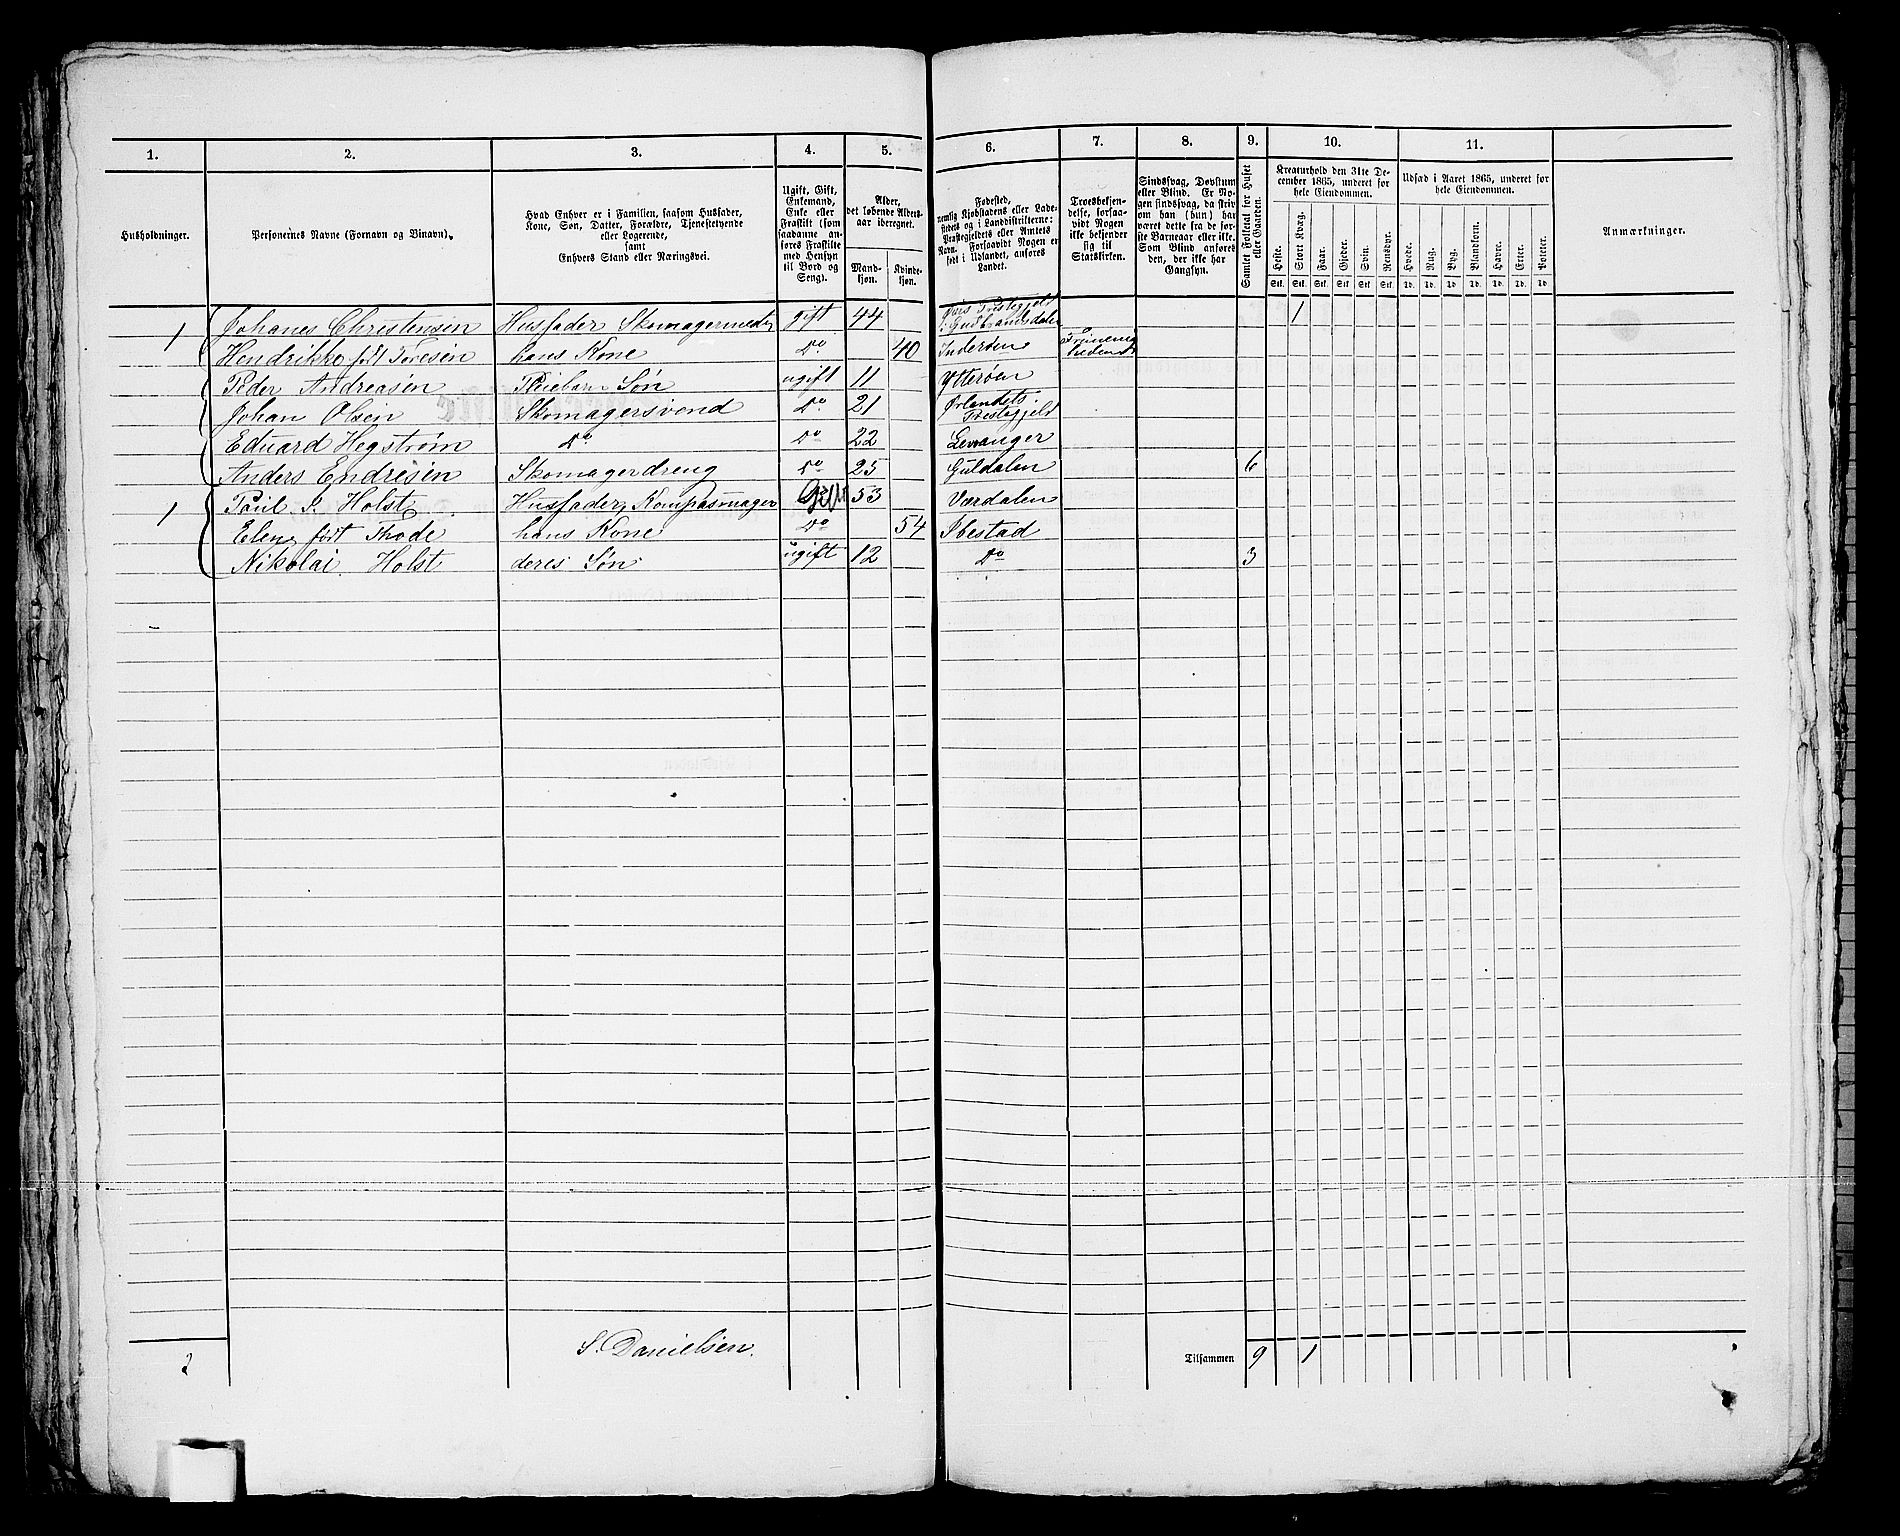 1. 2. 3. 4. 5. 6. 7. 8. 9. 10. 11.
Husholdninger.
Personernes Navne (Fornavn og Binavn).
Hvad Enhver er i Familien, saasom Husfader,
Kone, Søn, Datter, Forældre, Tjenestetyende
eller Logerende,
samt
Enhvers Stand eller Næringsvei.
Ugift, Gift,
Enkemand,
Enke eller
Fraskilt (som
saadanne an-
føres Fraskilte
med Hensyn
til Bord og
Seng).
Alder,
det løbende Alders-
aar iberegnet.
Mand-
kjøn.
Kvinde-
kjøn.
Fødested,
nemlig Kjøbstadens eller Lade-
stedets og i Landdistrikterne:
Præstegjeldets eller Amtets
Navn. Forsaavidt Nogen er
født i Udlandet, anføres
Landet.
Troesbekjen-
delse, forsaa-
vidt Nogen
ikke bekjender
sig til
Statskirken.
Sindssvag, Døvstum
eller Blind. Er No-
gen sindssvag, da skriv
om han (hun) har
været dette fra de før-
ste Barneaar eller ikke.
Som Blind anføres
den, der ikke har
Gangsyn.
Samlet Folketal for Huset
eller Gaarden.
Kreaturhold den 31te De-
cember 1865, underet for
hele Eiendommen.
Heste. Stort Kvæg. Faar. Gjeder. Svin. Rensdyr.
Stk. Stk. Stk. Stk. Stk. Stk.
Udsæd i Aaret 1865, underet for
hele Eiendommen.
Hvede. Rug. Byg. Blandkorn. Havre. Erter. Poteter.
Td. Td. Td. Td. Td. Td. Td.
Anmærkninger.
1 Johanes Christensen Husfader Skomagermester gift 44 Præstegjeld i Gudbrandsdalen 1
Hendrikke født Toresen hans Kone do. 40 Inderøen
Peder Andreasen Pleiebarn Søn ugift 11 Ytterøen
Johan Olsen Skomagersvend do. 21 Ørlandets Prestegjeld
Eduard Hegstrøm do do 22 Levanger
Anders Endresen Skomagerdreng do 25 Guldalen 6
1 Paul P. Holst Husfader, Kompasmager Gift 53 Værdalen
Elen født Thode hans Kone do 54 Ibestad
Nikolai Holst deres Søn ugift 12 do 3
2 S. Danielsen. Tilsammen 9 1